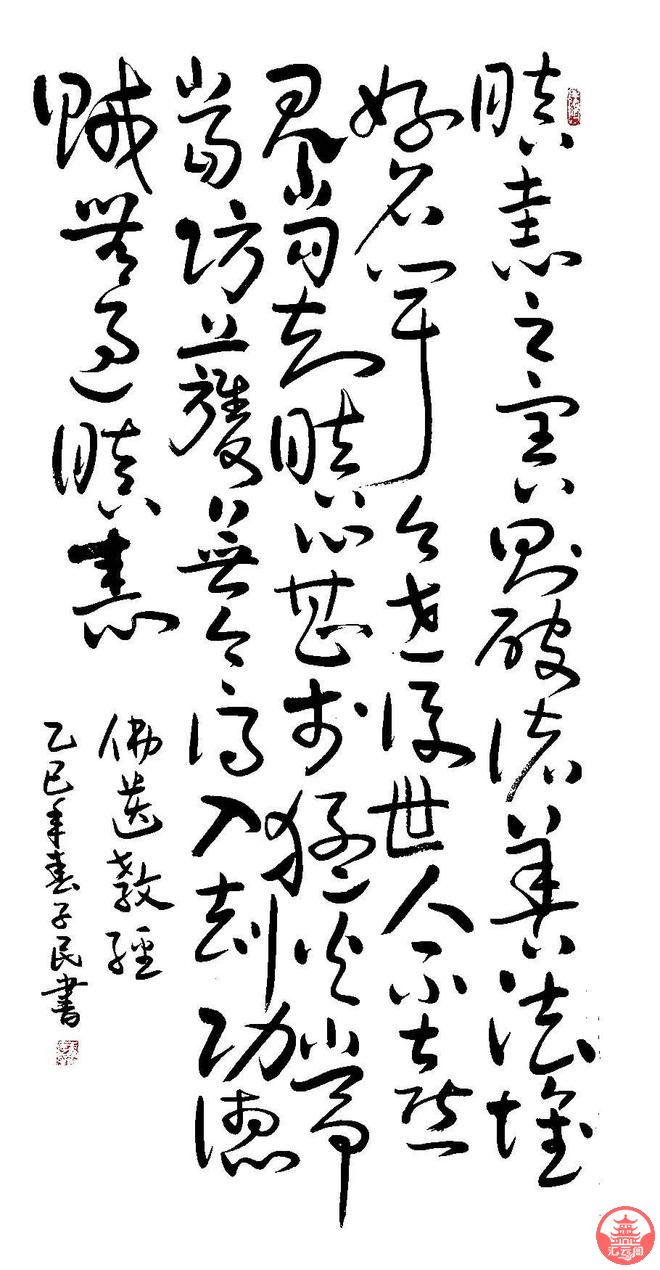 瞋恚之害則破諸善法壞
好名聞今世後世人不喜
見當知瞋心甚於猛火常
當防護無令得入劫功德
賊無過瞋恚
佛遺教經
乙巳年春子民書
汇云阁